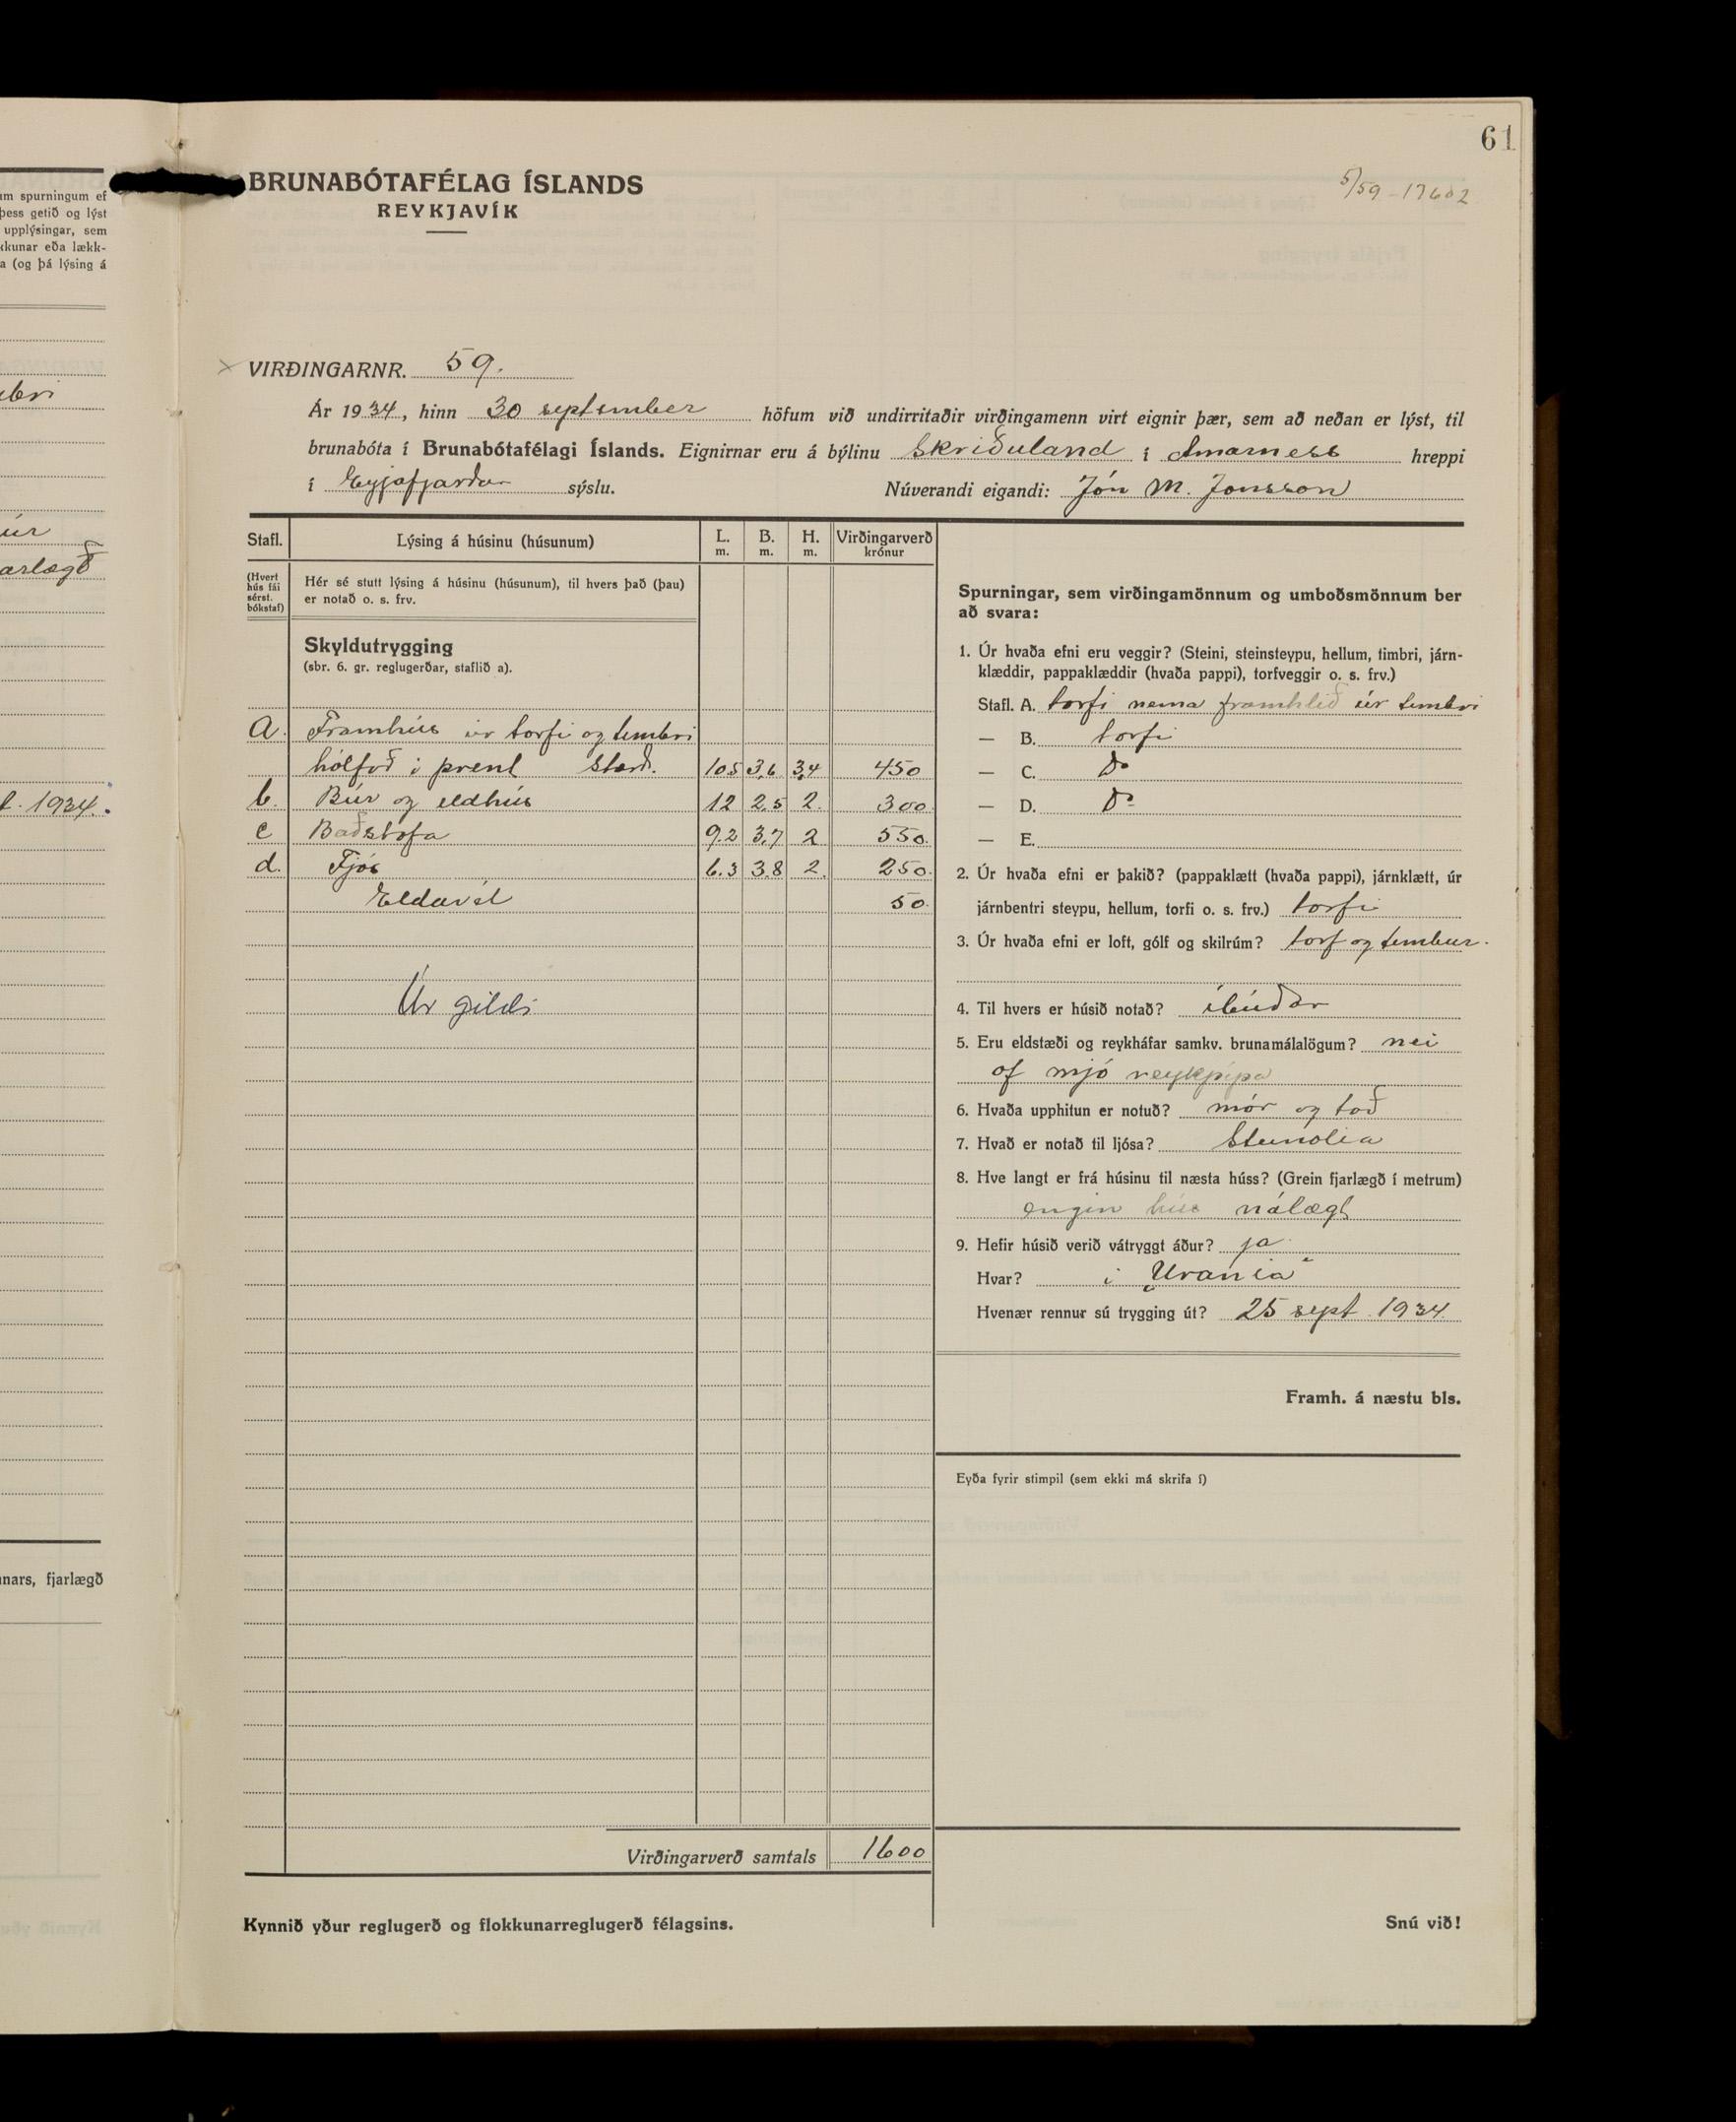 um spurningum ef
þess getið og lýst
upplýsingar, sem
kkunar eða lækk-
a (og þá lýsing á
úr
arlægð
t. 1934.
nnars, fjarlægð
61
5/59 - 17602
BRUNABÓTAFÉLAG ÍSLANDS
REYKJAVÍK
VIRÐINGARNR. 59.
Ár 1934, hinn 30 september höfum við undirritaðir virðingamenn virt eignir þær, sem að neðan er lýst, til
brunabóta í Brunabótafélagi Íslands. Eignirnar eru á býlinu Skriðuland í Arnarness hreppi
í Eyjafjarðar sýslu. Núverandi eigandi: Jón M. Jónsson
Stafl. Lýsing á húsinu (húsunum) L. m. B. m. H. m. Virðingarverð krónur
(Hvert hús fái sérst. bókstaf)
Hér sé stutt lýsing á húsinu (húsunum), til hvers það (þau)
er notað o. s. frv.
Skyldutrygging
(sbr. 6. gr. reglugerðar, staflið a).
A. Framhús úr torfi og timbri
hólfað í þrent Stærð. 10.5 3,6 3,4 450
b. Búr og eldhús 12 2.5 2. 300.
c Baðstofa 9.2 3,7 2 550.
d. Fjós 6.3 3.8 2. 250.
Eldavél 50.
Úr gildi
Virðingarverð samtals 1600
Kynnið yður reglugerð og flokkunarreglugerð félagsins.
Spurningar, sem virðingamönnum og umboðsmönnum ber
að svara:
1. Úr hvaða efni eru veggir? (Steini, steinsteypu, hellum, timbri, járn-
klæddir, pappaklæddir (hvaða pappi), torfveggir o. s. frv.)
Stafl. A. torfi nema framhlið úr timbri
— B. torfi
— C. Do
— D. Do
— E.
2. Úr hvaða efni er þakið? (pappaklætt (hvaða pappi), járnklætt, úr
járnbentri steypu, hellum, torfi o. s. frv.) torfi
3. Úr hvaða efni er loft, gólf og skilrúm? torf og timbur.
4. Til hvers er húsið notað? íbúðar
5. Eru eldstæði og reykháfar samkv. brunamálalögum? nei
of mjó reykpípa
6. Hvaða upphitun er notuð? mór og tað
7. Hvað er notað til ljósa? Steinolia
8. Hve langt er frá húsinu til næsta húss? (Grein fjarlægð í metrum)
engin hús nálægt
9. Hefir húsið verið vátryggt áður? já
Hvar? í „Urania“
Hvenær rennur sú trygging út? 25 sept. 1934.
Framh. á næstu bls.
Eyða fyrir stimpil (sem ekki má skrifa í)
Snú við!